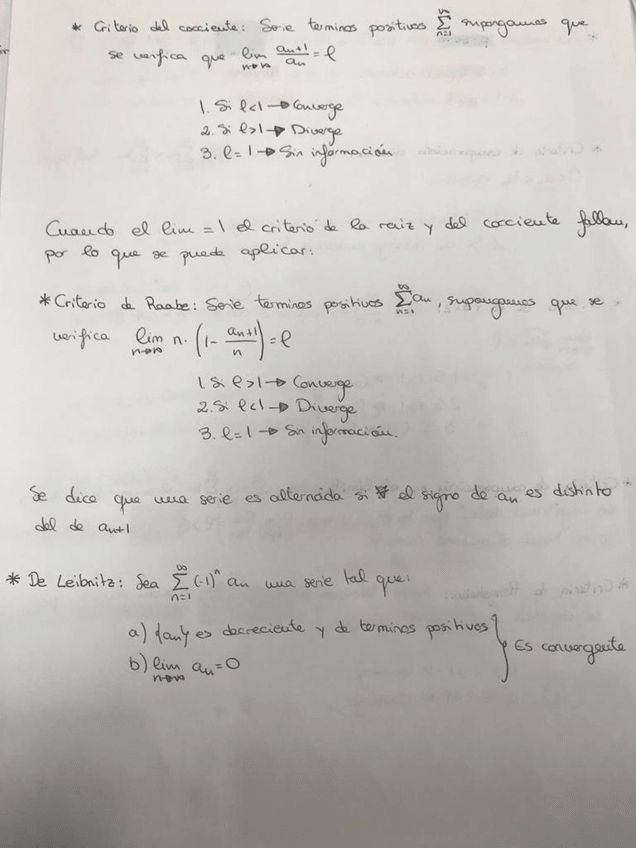 * Criterio del cociente: Serie terminos positivos ∑_{n=1}^{∞} supongamos que
se verifica que lim_{n→∞} a_{n+1}/a_n = l
1. Si l<1 → Converge
2. Si l>1 → Diverge
3. l=1 → Sin información
Cuando el lim = 1 el criterio de la raiz y del cociente fallan,
por lo que se puede aplicar:
* Criterio de Raabe: Serie terminos positivos ∑_{n=1}^{∞} a_n, supongamos que se
verifica lim_{n→∞} n · (1 - a_{n+1}/n) = l
1. Si l>1 → Converge
2. Si l<1 → Diverge
3. l=1 → Sin información.
Se dice que una serie es alternada si el signo de a_n es distinto
del de a_{n+1}
* De Leibnitz: Sea ∑_{n=1}^{∞} (-1)^n a_n una serie tal que:
a) {a_n} es decreciente y de terminos positivos
b) lim_{n→∞} a_n = 0 } Es convergente